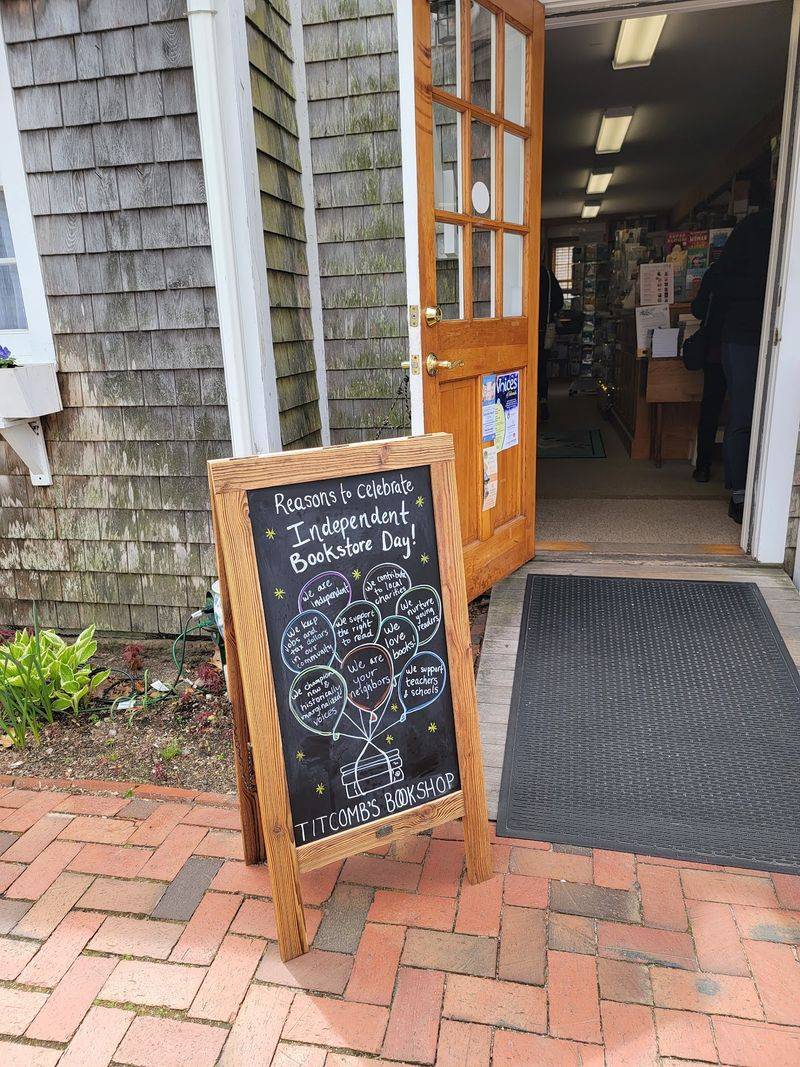 Reasons to Celebrate
Independent
Bookstore Day!
we are
independent
we contribute
to local
charities
we keep
jobs and
tax dollars
in our
community
we support
the right
to read
we nurture
young
readers
we love
books
We are
your
neighbors
we champion
new &
historically
marginalized
voices
we support
teachers
& schools
TITCOMB'S BOOKSHOP
Voices